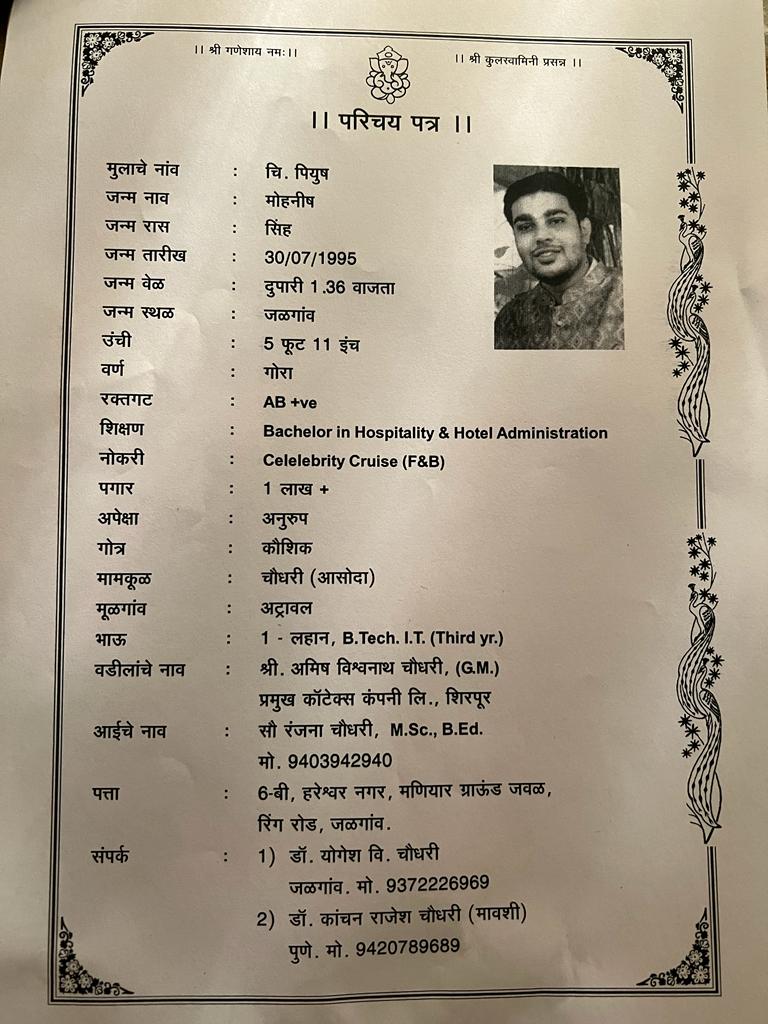 ।। श्री गणेशाय नमः।।
।। श्री कुलस्वामिनी प्रसन्न ।।
।। परिचय पत्र ।।
मुलाचे नांव : चि. पियुष
जन्म नाव : मोहनीष
जन्म रास : सिंह
जन्म तारीख : 30/07/1995
जन्म वेळ : दुपारी 1.36 वाजता
जन्म स्थळ : जळगांव
उंची : 5 फूट 11 इंच
वर्ण : गोरा
रक्तगट : AB +ve
शिक्षण : Bachelor in Hospitality & Hotel Administration
नोकरी : Celelebrity Cruise (F&B)
पगार : 1 लाख +
अपेक्षा : अनुरुप
गोत्र : कौशिक
मामकूळ : चौधरी (आसोदा)
मूळगांव : अट्रावल
भाऊ : 1 - लहान, B.Tech. I.T. (Third yr.)
वडीलांचे नाव : श्री. अमिष विश्वनाथ चौधरी, (G.M.)
प्रमुख कॉटेक्स कंपनी लि., शिरपूर
आईचे नाव : सौ रंजना चौधरी, M.Sc., B.Ed.
मो. 9403942940
पत्ता : 6-बी, हरेश्वर नगर, मणियार ग्राऊंड जवळ,
रिंग रोड, जळगांव.
संपर्क : 1) डॉ. योगेश वि. चौधरी
जळगांव. मो. 9372226969
2) डॉ. कांचन राजेश चौधरी (मावशी)
पुणे. मो. 9420789689